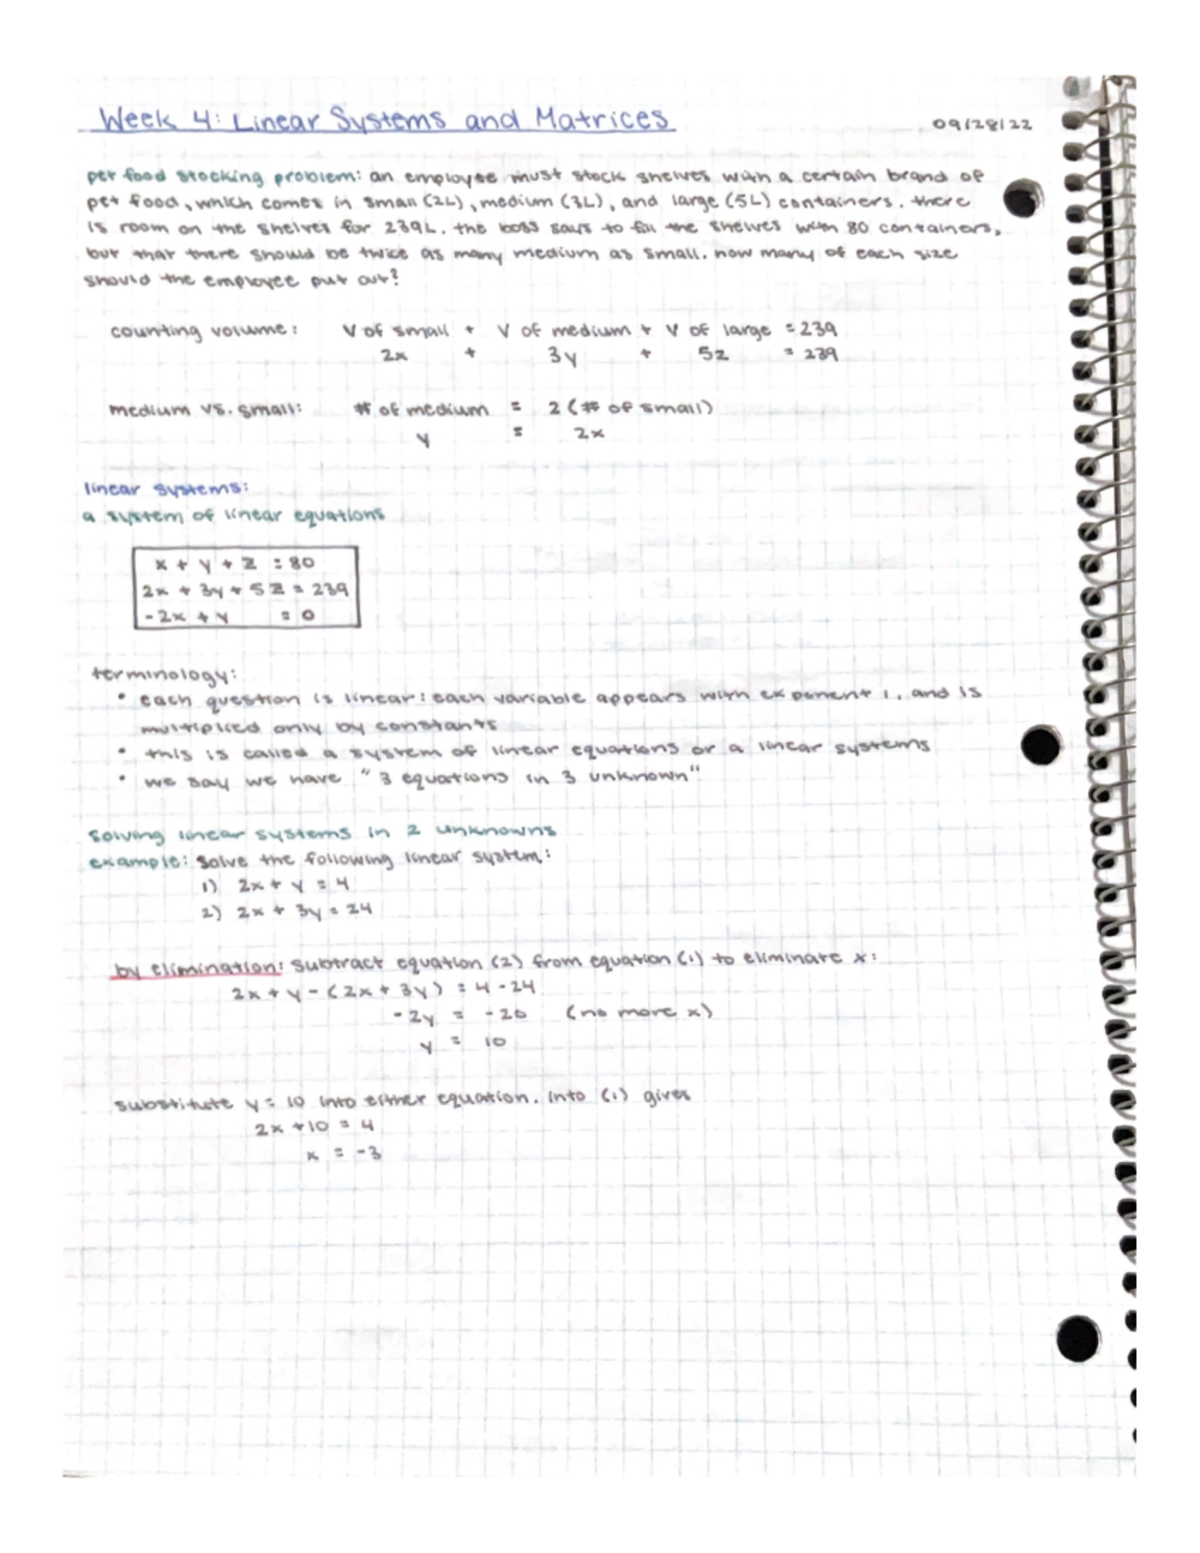 Week 4: Linear Systems and Matrices
09/28/22
pet food stocking problem: an employee must stock shelves with a certain brand of
pet food, which comes in small (2L), medium (3L), and large (5L) containers. there
is room on the shelves for 239L. the boss says to fill the shelves with 80 containers,
but that there should be twice as many medium as small. how many of each size
should the employee put out?
counting volume: V of small + V of medium + V of large = 239
2x + 3y + 5z = 239
medium vs. small: # of medium = 2 (# of small)
y = 2x
linear systems:
a system of linear equations
x + y + z = 80
2x + 3y + 5z = 239
-2x + y = 0
terminology:
• each question is linear: each variable appears with exponent 1, and is
multiplied only by constants
• this is called a system of linear equations or a linear systems
• we say we have "3 equations in 3 unknown"
solving linear systems in 2 unknowns
example: solve the following linear system:
1) 2x + y = 4
2) 2x + 3y = 24
by elimination: subtract equation (2) from equation (1) to eliminate x:
2x + y - (2x + 3y) = 4 - 24
-2y = -20 (no more x)
y = 10
substitute y = 10 into either equation. into (1) gives
2x + 10 = 4
x = -3